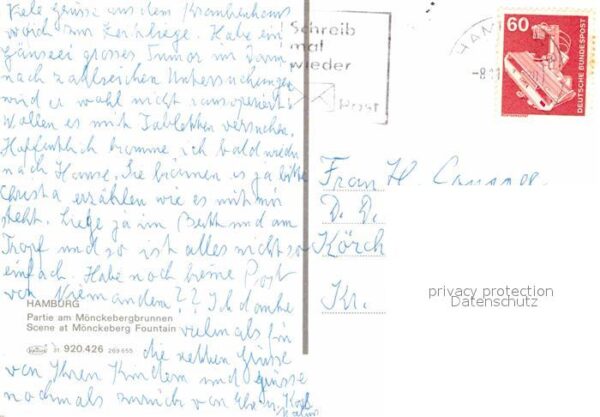 Viele Grüsse aus dem Krankenhaus
wo ich zur Zeit liege. Habe ein
Gänseei grosses Tumor im Darm
nach zahlreichen Untersuchungen
wird er wohl nicht rausoperiert
wollen es mit Tabletten versuchen.
Hoffentlich komme ich bald wieder
nach Hause. Sie können es ja bitte
Christa erzählen wie es mir
geht. Liege ja im Bett und am
Tropf und so ist alles nicht so
einfach. Habe noch keine Post
von Niemandem?? Ich danke
vielmals für
die netten Grüsse
von Ihren Kindern und grüsse
nochmals zurück von
HAMBURG
Partie am Mönckebergbrunnen
Scene at Mönckeberg Fountain
21 920.426 269 655
Schreib
mal
wieder
Post
HAM
-8.11
60
DEUTSCHE BUNDESPOST
Frau H.
D. D.
Körch
Kr.
privacy protection
Datenschutz